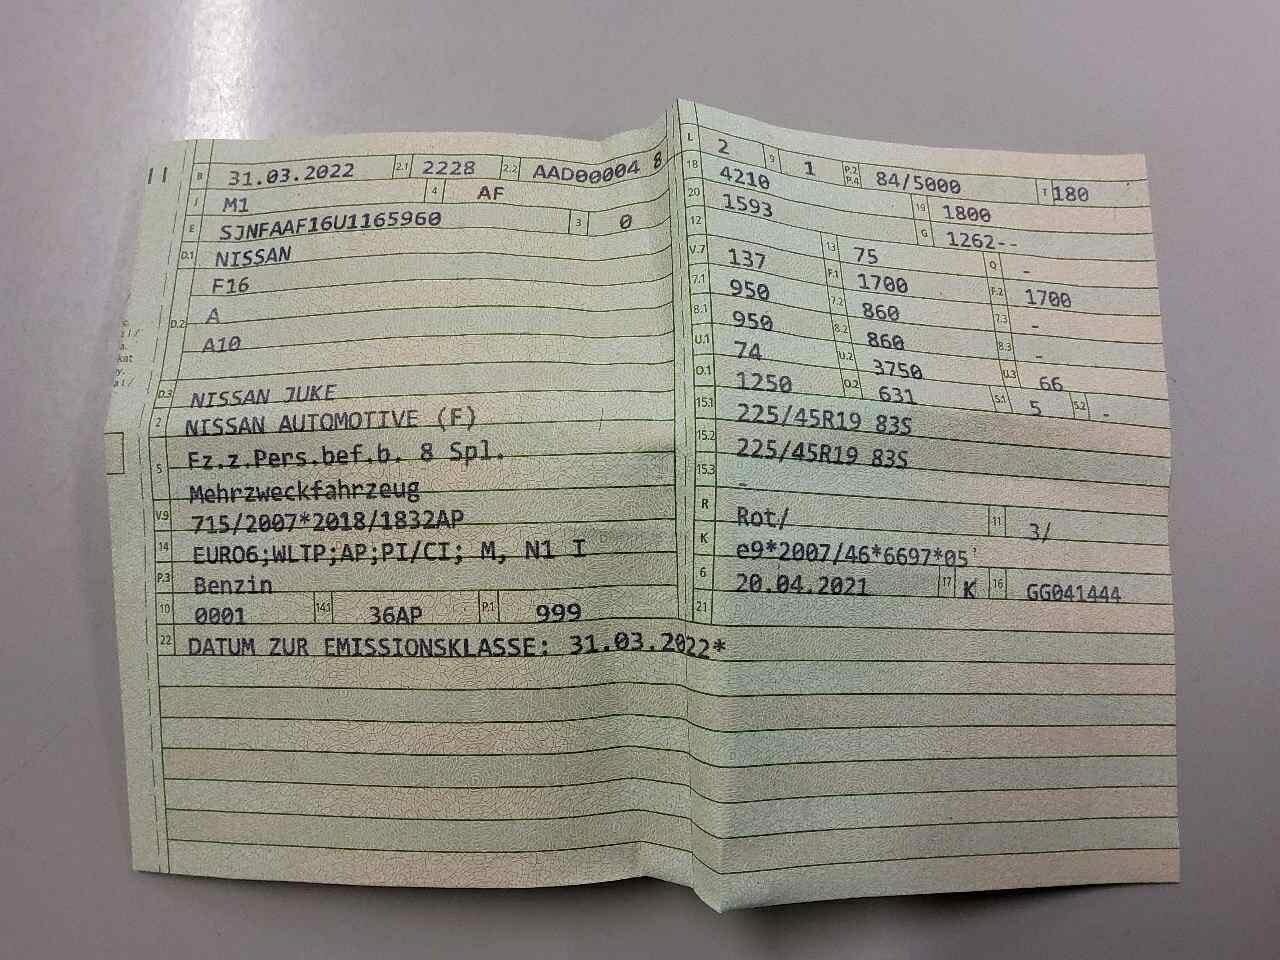 B 31.03.2022 2.1 2228 2.2 AAD00004 8
J M1 4 AF
E SJNFAAF16U1165960 3 0
D.1 NISSAN
F16
D.2 A
A10
D.3 NISSAN JUKE
2 NISSAN AUTOMOTIVE (F)
5 Fz.z.Pers.bef.b. 8 Spl.
Mehrzweckfahrzeug
V.9 715/2007*2018/1832AP
14 EURO6;WLTP;AP;PI/CI; M, N1 I
P.3 Benzin
10 0001 14.1 36AP P.1 999
22 DATUM ZUR EMISSIONSKLASSE: 31.03.2022*
L 2 9 1 P.2 P.4 84/5000 T 180
18 4210 19 1800
20 1593 G 1262--
12 13 75 Q -
V.7 137 F.1 1700 F.2 1700
7.1 950 7.2 860 7.3 -
8.1 950 8.2 860 8.3 -
U.1 74 U.2 3750 U.3 66
O.1 1250 O.2 631 S.1 5 S.2 -
15.1 225/45R19 83S
15.2 225/45R19 83S
15.3 -
R Rot/ 11 3/
K e9*2007/46*6697*05
6 20.04.2021 17 K 16 GG041444
21